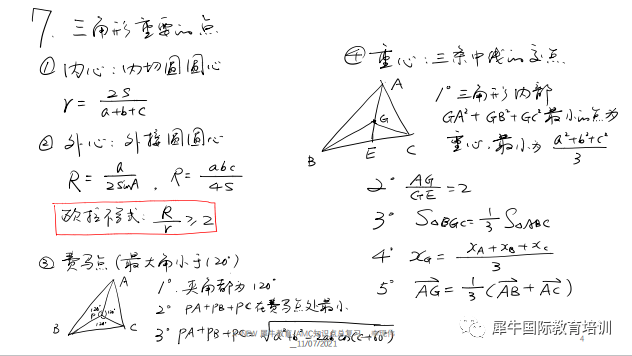 7. 三角形重要的点
① 内心：内切圆圆心
r = 2S / (a+b+c)
② 外心：外接圆圆心
R = a / (2sinA) , R = abc / 4S
欧拉不等式: R/r ≥ 2
③ 费马点 (最大角小于120°)
A
P
120°
120°
120°
B
C
1° 夹角都为120°
2° PA+PB+PC在费马点处最小
3° PA+PB+PC = √(a²+b²-2ab cos(C+60°))
④ 重心：三条中线的交点
A
G
B
E
C
1° 三角形内部
GA²+GB²+GC²最小的点为
重心. 最小为 (a²+b²+c²) / 3
2° AG/GE = 2
3° S△BGC = 1/3 S△ABC
4° x_G = (x_A + x_B + x_C) / 3
5° AG = 1/3 (AB + AC)
11/07/2021
犀牛国际教育培训
4